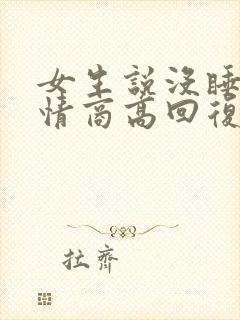 女生說沒睡
情商高回復
拉齊